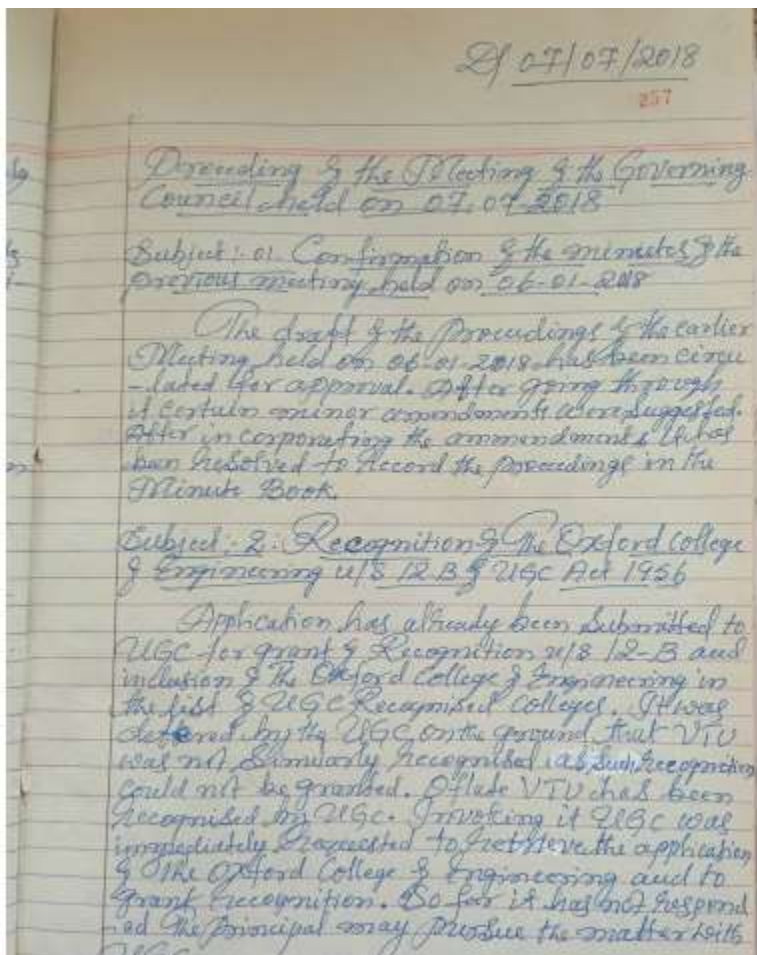 Dt 07/07/2018
257
Proceeding of the Meeting of the Governing
Council held on 07.07-2018
Subject:-01. Confirmation of the minutes of the
previous meeting held on 06-01-2018
The draft of the Proceedings of the earlier
Meeting held on 06-01-2018 has been circu
-lated for approval. After going through
it certain minor amendments were suggested.
After incorporating the ammendments it has
been resolved to record the proceedings in the
Minute Book.
Subject:-2: Recognition of The Oxford College
of Engineering u/s 12-B of UGC Act 1956
Application has already been submitted to
UGC for grant of Recognition u/s 12-B and
inclusion of The Oxford College of Engineering in
the list of UGC Recognised Colleges. It was
defered by the UGC on the ground that VTU
was not similarly recognised as such recognition
could not be granted. Of late VTU has been
recognised by UGC. Invoking it UGC was
immediately requested to retrieve the application
of The Oxford College of Engineering and to
grant recognition. So far it has not respond
-ed The Principal may pursue the matter with
UGC